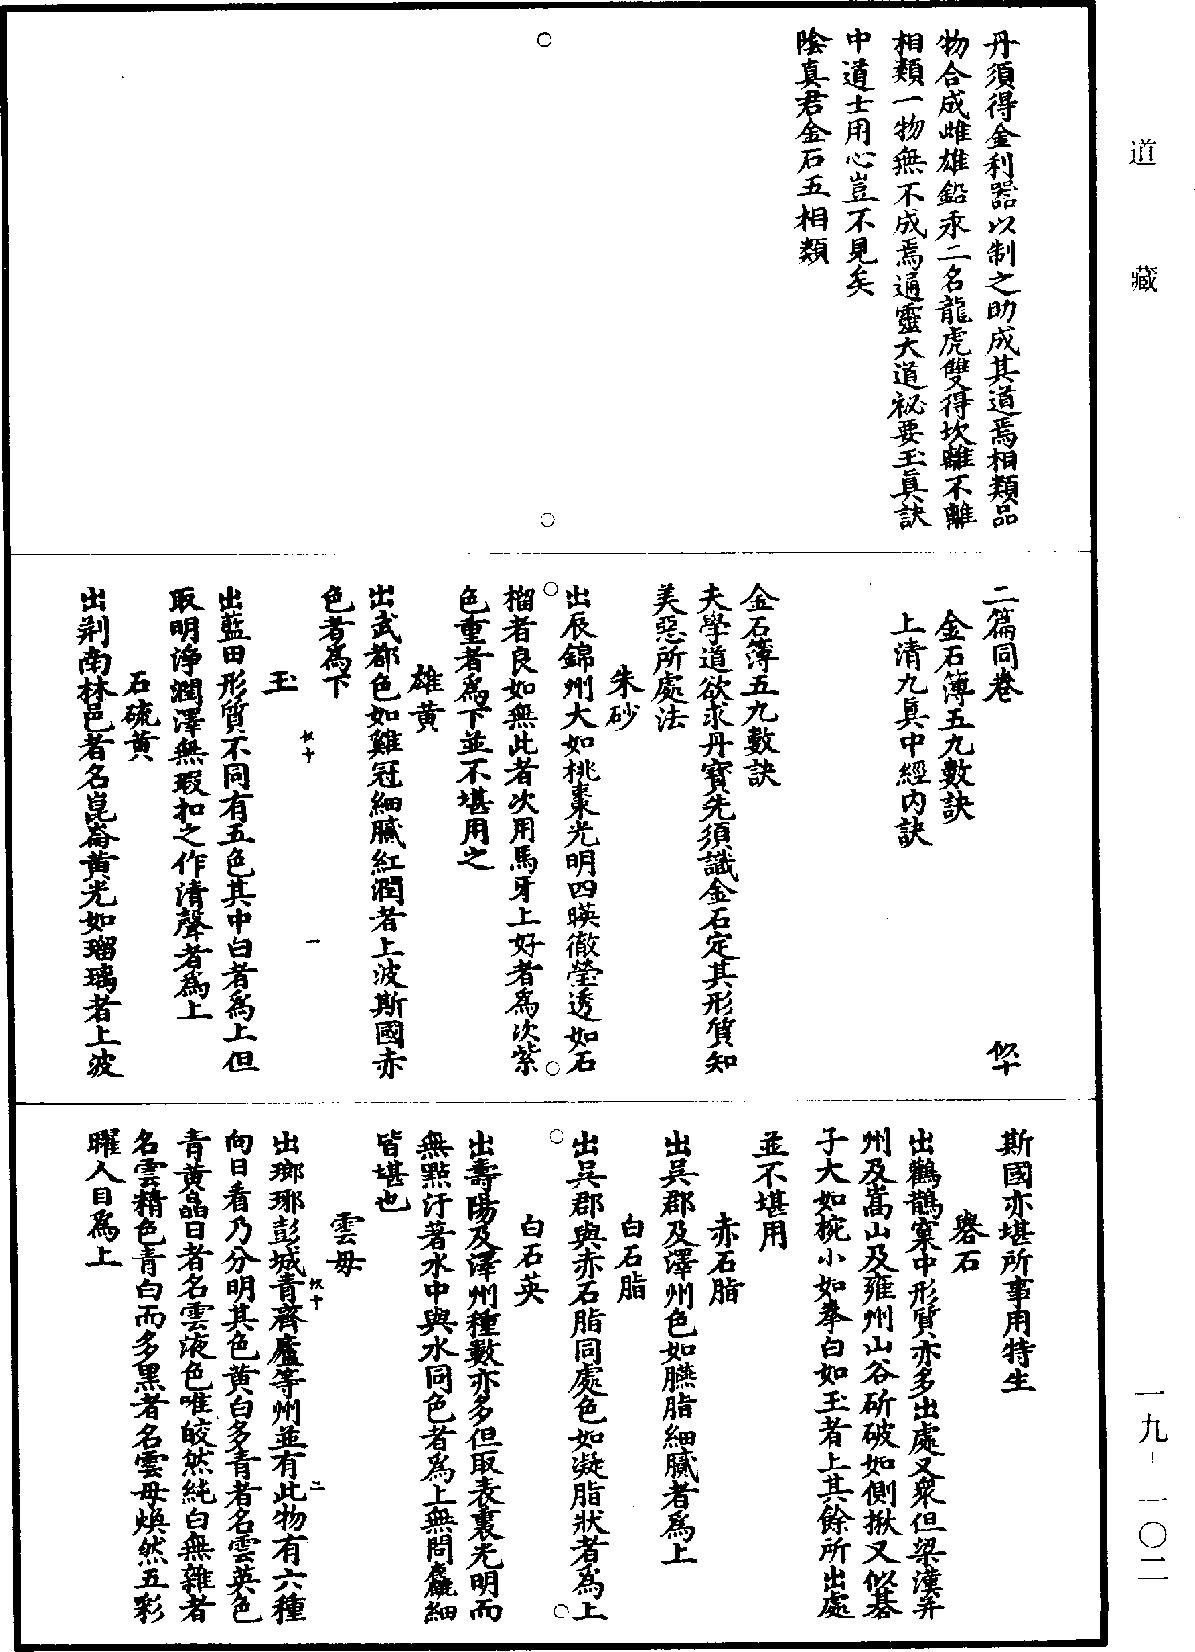 道藏
丹須得金利器以制之助成其道焉相類品
物合成雌雄鉛汞二名龍虎雙得坎離不離
相類一物無不成焉通靈大道祕要玉真訣
中道士用心豈不見矣
陰真君金石五相類
二篇同卷
似十
金石簿五九數訣
上清九真中經內訣
金石簿五九數訣
夫學道欲求丹寶先須識金石定其形質知
美惡所處法
朱砂
出辰錦州大如桃棗光明四暎徹瑩透如石
榴者良如無此者次用馬牙上好者為次紫
色重者為下並不堪用之
雄黃
出武都色如雞冠細膩紅潤者上波斯國赤
色者為下
似十
一
玉
出藍田形質不同有五色其中白者為上但
取明淨潤澤無瑕扣之作清聲者為上
石硫黃
出荊南林邑者名崑崙黃光如瑠璃者上波
斯國亦堪所事用特生
礜石
出鸛鵲窠中形質亦多出處又眾但梁漢并
州及嵩山及雍州山谷斫破如側揪又似碁
子大如梡小如拳白如玉者上其餘所出處
並不堪用
赤石脂
出吳郡及澤州色如臙脂細膩者為上
白石脂
出吳郡與赤石脂同處色如凝脂狀者為上
白石英
出壽陽及澤州種數亦多但取表裏光明而
無點汙著水中與水同色者為上無問麤細
皆堪也
雲母
似十
二
出瑯琊彭城青齊廬等州並有此物有六種
向日看乃分明其色黃白多青者名雲英色
青黃皛白者名雲液色唯皎然純白無雜者
名雲精色青白而多黑者名雲母煥然五彩
曜人目為上
一九-一〇二